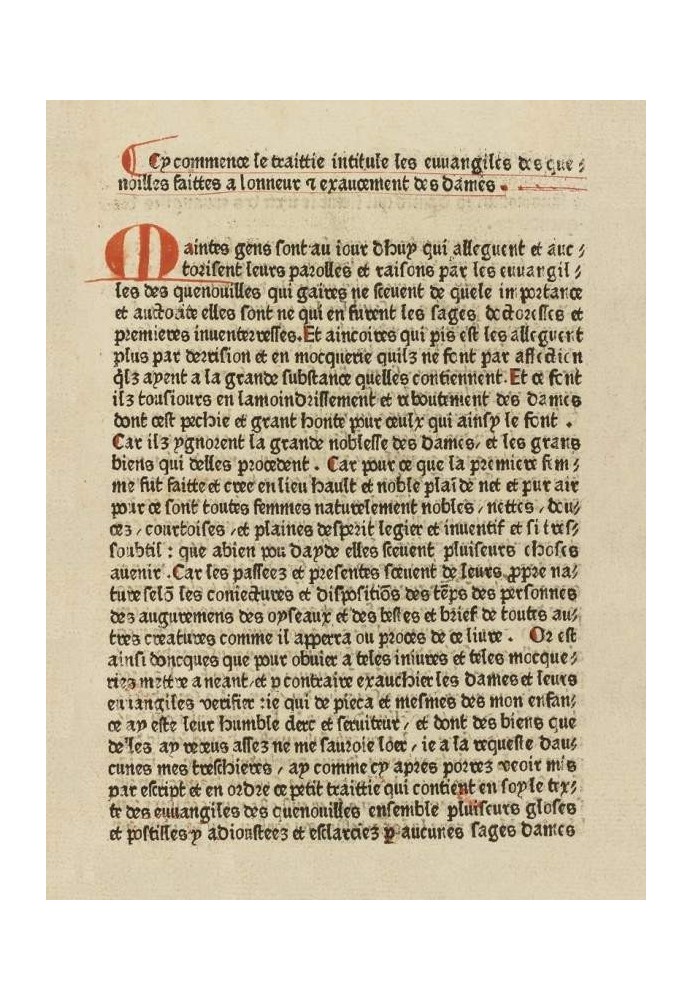 Cy commence le traittie intitule les euuangiles des que⸗
noilles faittes a lonneur ⁊ exaucement des dames .
Maintes gens sont au iour dhuy qui alleguent et auc⸗
torisent leurs parolles et raisons par les euuangil⸗
les des quenouilles qui gaires ne sceuent de quele inportance
et auctorite elles sont ne qui en furent les sages doctoresses et
premieres inuenterresses. Et aincoires qui pis est les alleguent
plus par derrision et en mocquerie quilz ne font par affection
q̃lz ayent a la grande substance quelles contiennent. Et ce font
ilz tousiours en lamoindrissement et reboutement des dames
dont cest pechie et grant honte pour ceulx qui ainsy le font .
Car ilz ygnorent la grande noblesse des dames/ et les grans
biens qui delles procedent . Car pour ce que la premiere fem⸗
me fut faitte et cree en lieu hault et noble plai̅ de net et pur air
pour ce sont toutes femmes naturelement nobles / nettes / doul⸗
cez / courtoises /et plaines desperit legier et inuentif et si tres⸗
soubtil : que abien pou dayde elles sceuent pluiseurs choses
auenir . Car les passeez et presentes sceuent de leurs ꝓpre na⸗
ture selo̅ les coniectures et dispositio̅s des te̅ps des personnes
dez auguremens des oyseaux et des bestes et brief de toutes au⸗
tres creatures comme il apperra ou proces de ce liure . Or est
ainsi doncques que pour obuier a teles iniures et teles mocque⸗
riez mettre a neant/et y contraire exauchier les dames et leurs
euuangiles verifier :ie qui de pieca et mesmes des mon enfan⸗
ce ay este leur humble clerc et seruiteur / et dont des biens que
delles ay receus assez ne me sauroie loer / ie a la requeste dau⸗
cunes mes treschieres / ay comme cy apres porrez veoir mis
par escript et en ordre ce petit traittie qui contient en soy le tex⸗
te des euuangiles des quenouilles ensemble pluiseurs gloses
et postilles y adiousteez et esclarciez ꝑ aucunes sages dames